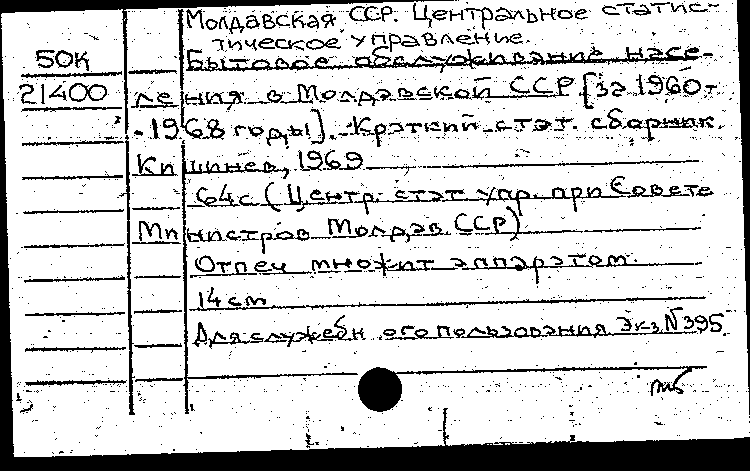 Молдавская ССР. Центральное статис-
тическое управление.
50к Бытовое обслуживание насе-
21400 ления в Молдавской ССР [за 1960-
-1968 годы]. Краткий стат. сборник.
Кишинев, 1969
64с (Центр. стат упр. при Совете
Министров Молдав ССР)
Отпеч множит аппаратом.
14 см
Для служебного пользования Экз №395